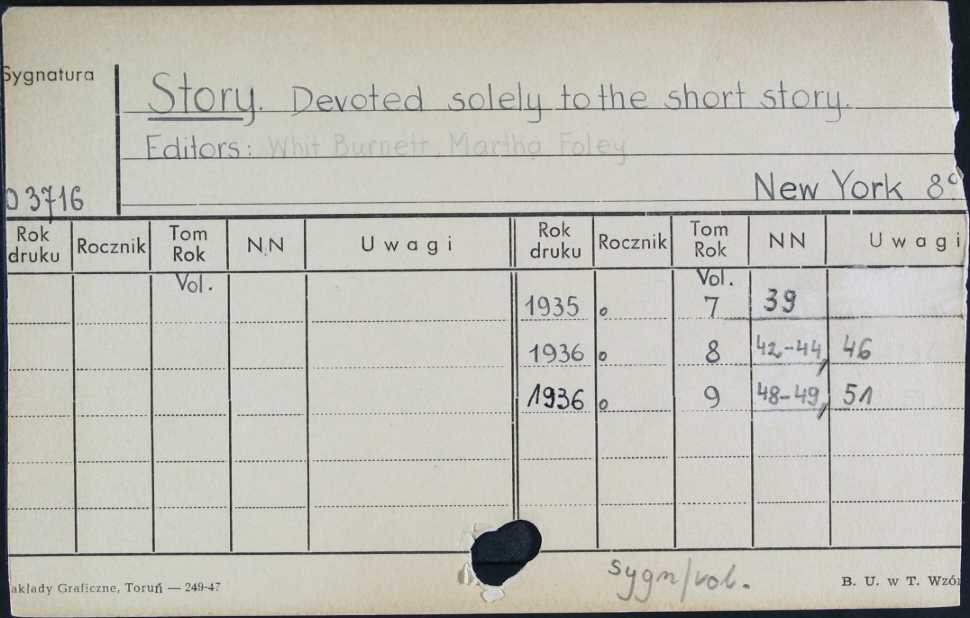 Sygnatura
Story. Devoted solely to the short story.
Editors: Whit Burnett, Martha Foley
03716
New York 8°
Rok druku Rocznik Tom Rok NN Uwagi Rok druku Rocznik Tom Rok NN Uwagi
Vol. Vol.
1935 o 7 39
1936 o 8 42-44, 46
1936 o 9 48-49, 51
sygn/vol.
akłady Graficzne, Toruń — 249-47 B. U. w T. Wzór